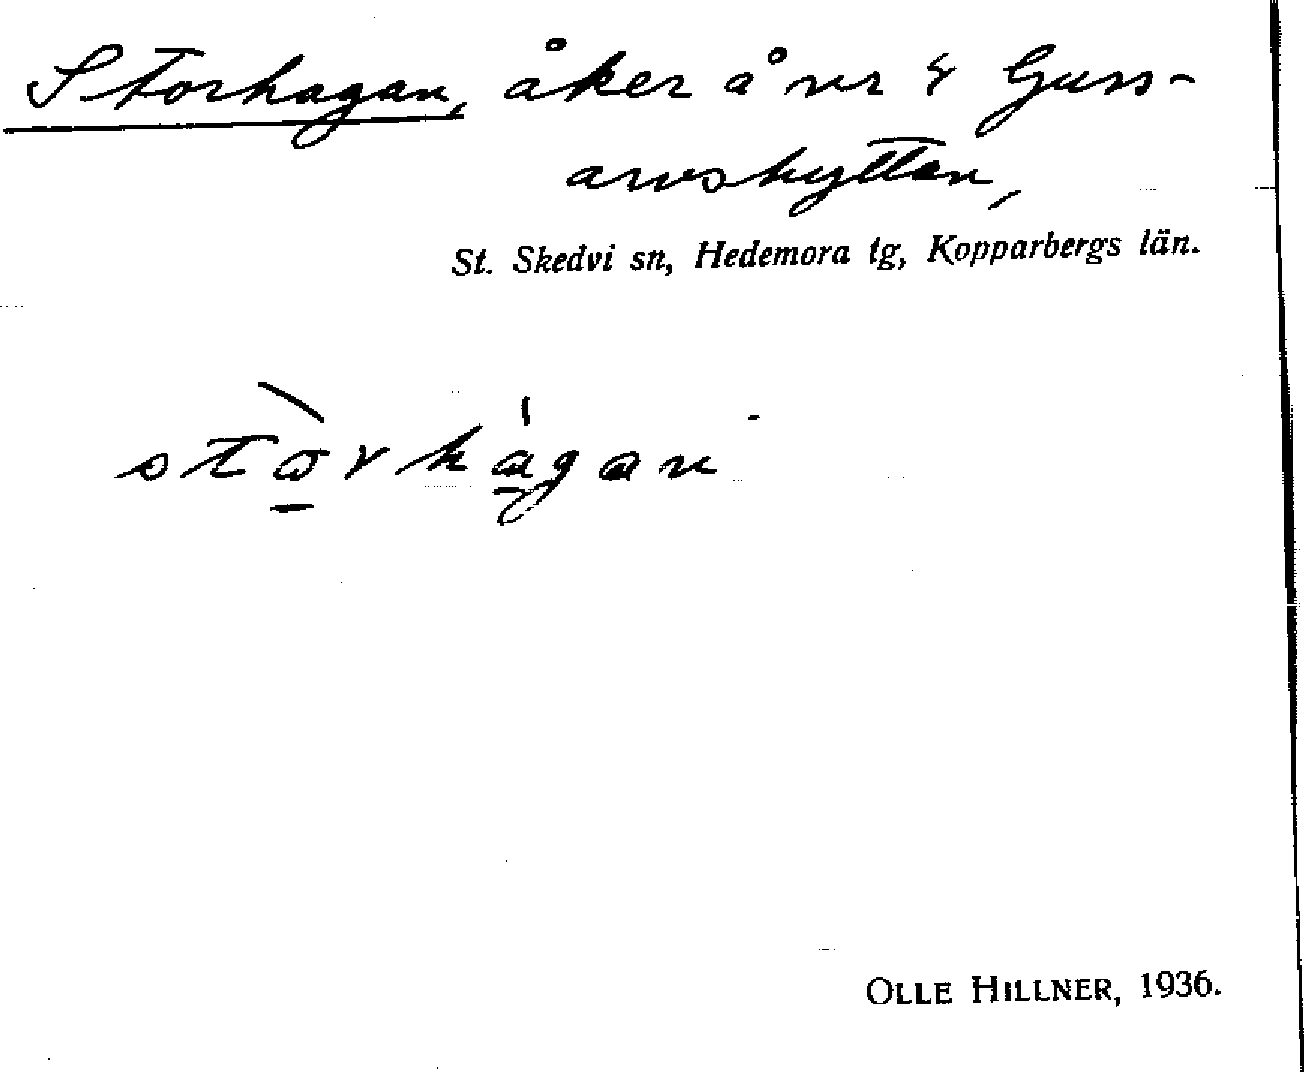 Storhagan, åker å vr & Guss-
arvshyttan,
St. Skedvi sn, Hedemora tg, Kopparbergs län.
OLLE HILLNER, 1936.